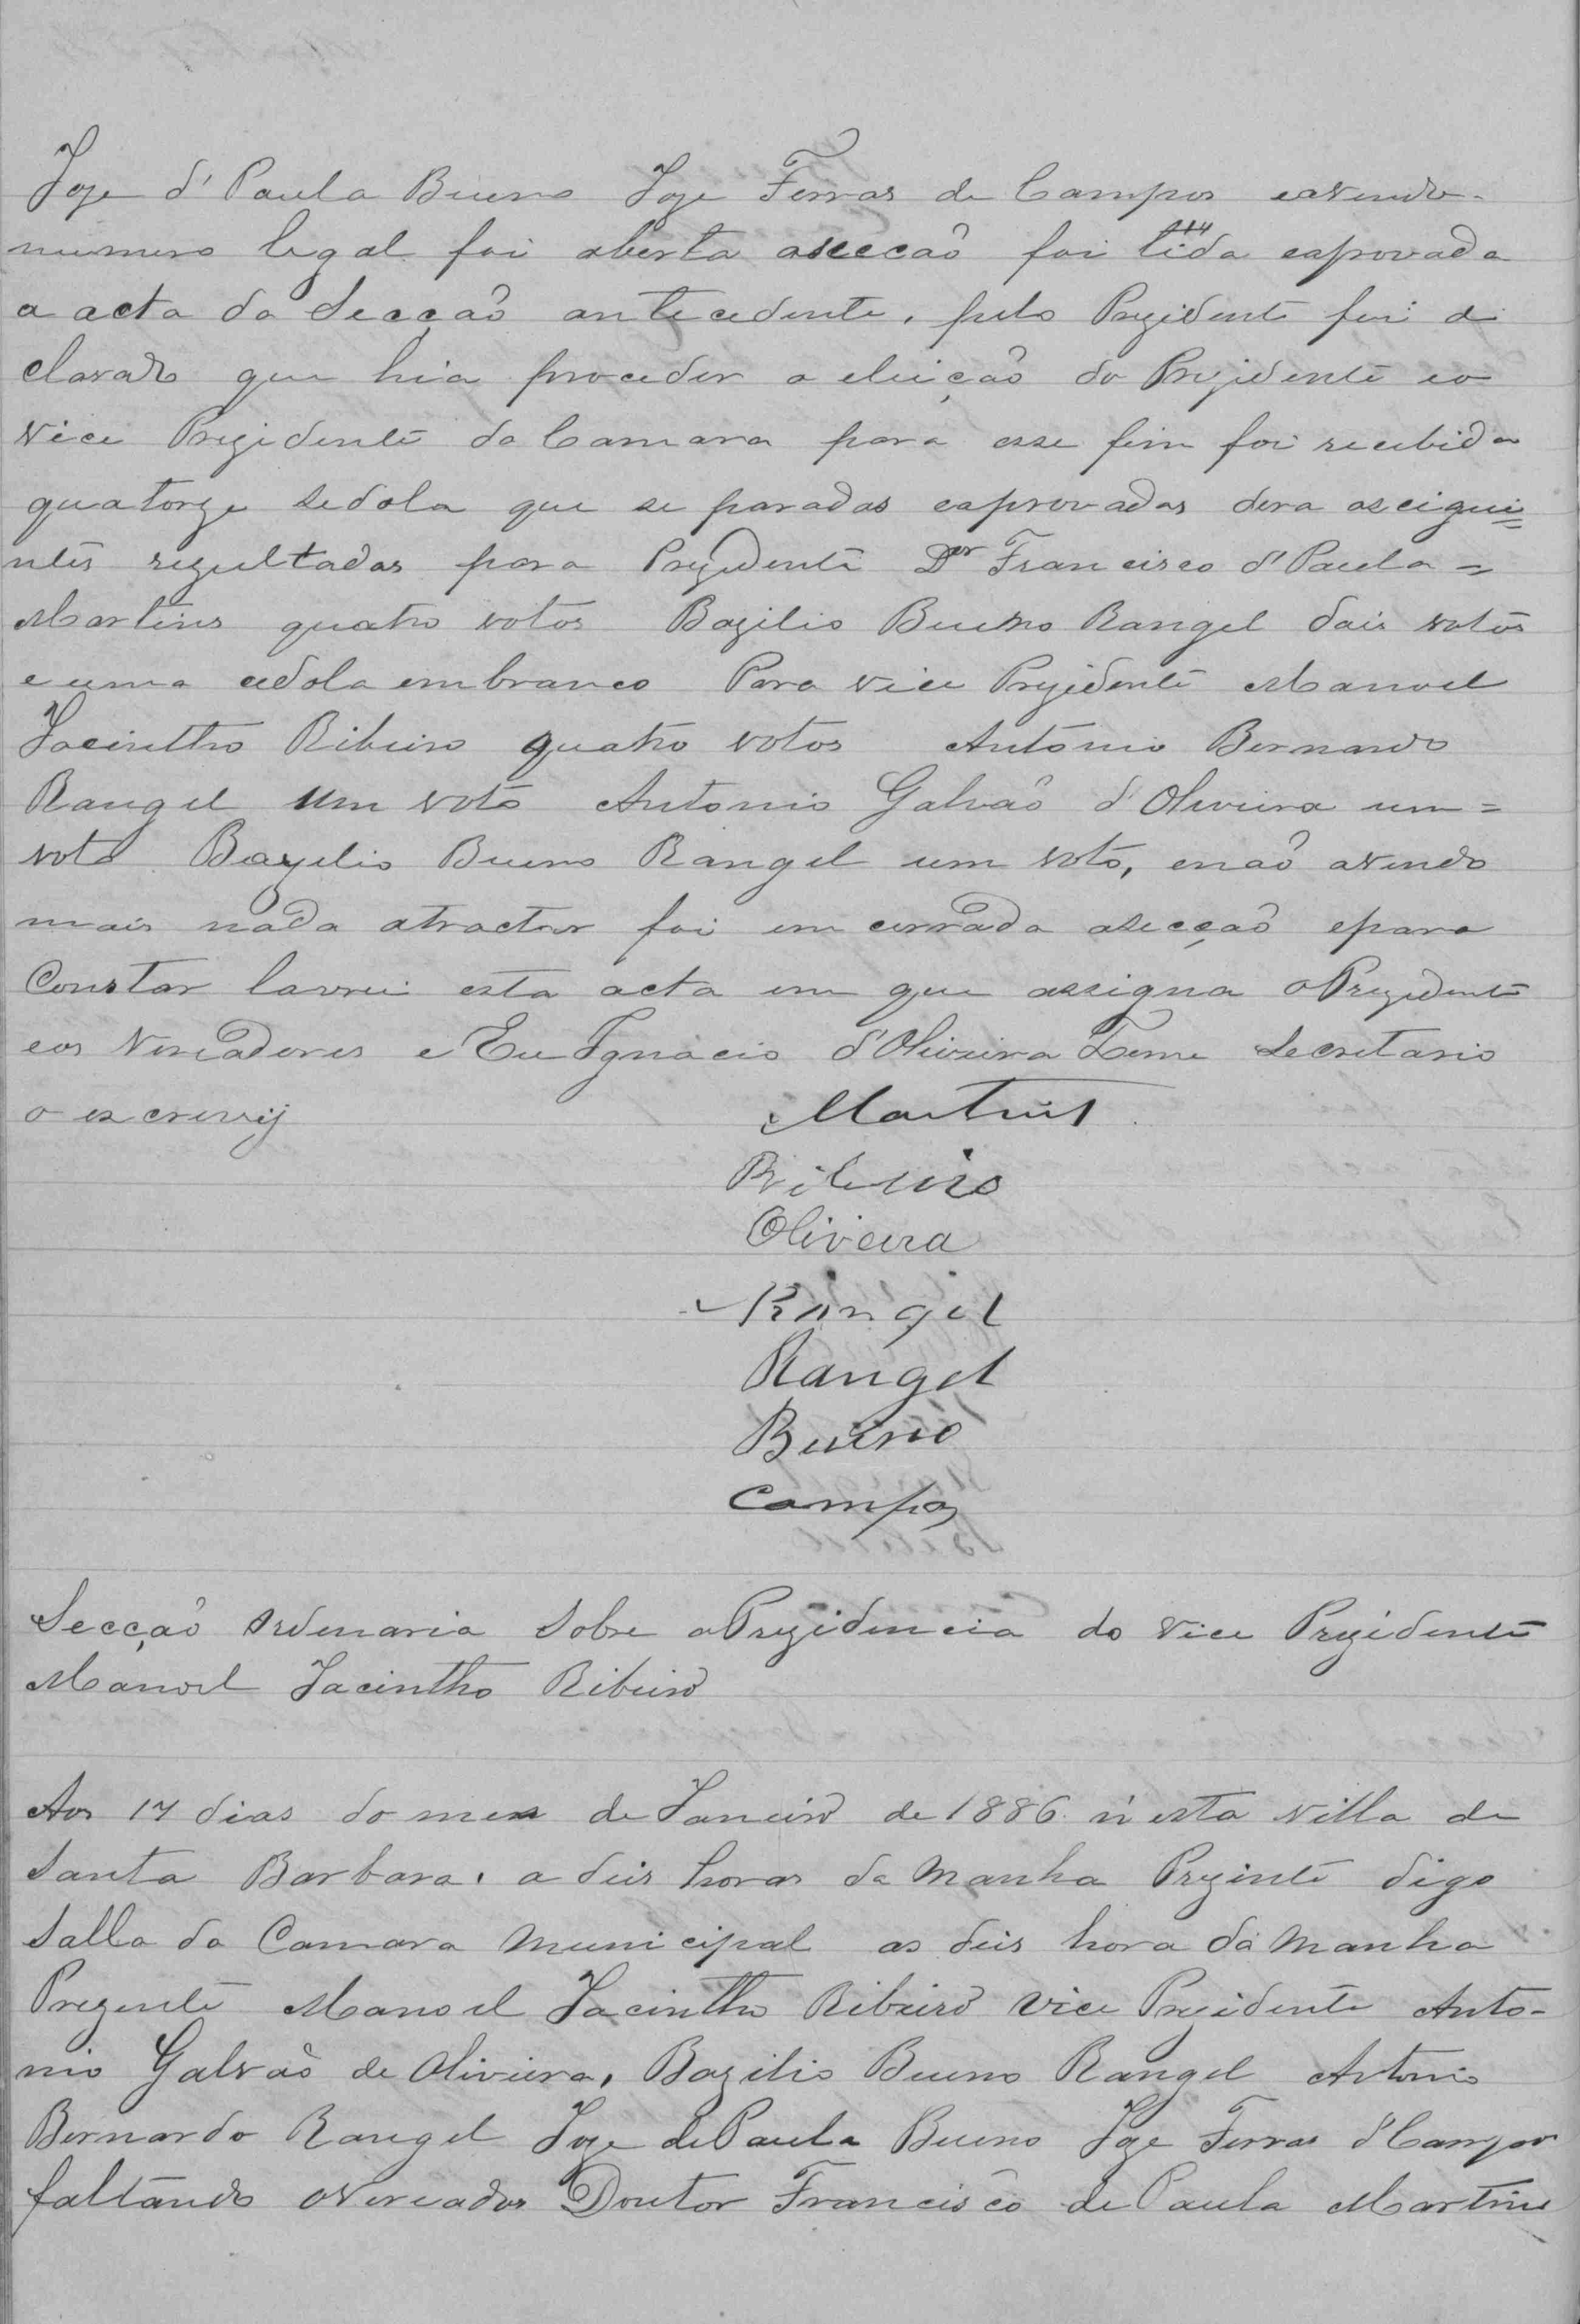 Joze d' Paula Bueno Joze Ferras de Campos eavendo
numero legal foi aberta asecçaô foi lida eaprovada
a acta da Secçaô antecedente, pelo Prezidente foi de
clarado que hia proceder a eleiçaô do Prezidente eo
Vice Prezidente da Camara para esse fim foi recebida
quatorze sedola que se paradas eaprovadas dera asseigui=
ntes rezultadas para Prezidente Dor Francisco d' Paula=
Martins quatro votos Bazilio Bueno Rangel dois votos
e uma cedola embranco Para vice Prezidente Manoel
Jacinttho Ribeiro quatro votos Antonio Bernardo
Rangel um voto Antonio Galvaô d'Oliveira um=
voto Bazilio Bueno Rangel um voto, enaô avendo
mais nada atractar foi em cerrada asecçaô epara
Constar lavrei esta acta em que assigna oPrezidente
eos Vereadores e Eu Ignacio d'Oliveira Leme Secretario
o escrevij
Martins
Ribeiro
Oliveira
Rangel
Rangel
Bueno
Campos
Secçaô Ordenaria Sobre aPrezidencia do Vice Prezidente
Manoel Jacintho Ribeiro
Aos 17 dias do mes de Janeiro de 1886 n'esta villa de
Santa Barbara. a deis horas da Manha Prezinte digo
Salla da Camara Municipal as deis hora da Manha
Prezente Manoel Jacinttho Ribeiro Vice Prezidente Anto-
nio Galvaô de Oliviera, Bazilio Bueno Rangel Antonio
Bernardo Rangel Joze de Paula Bueno Joze Ferras d'Campos
faltando oVereador Doutor Francisco de Paula Martins